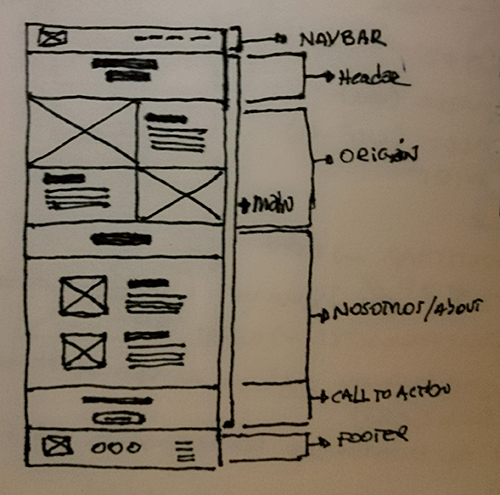 NAVBAR
Header
ORIGIN
Main
NOSOTROS/ABOUT
CALL TO ACTION
FOOTER